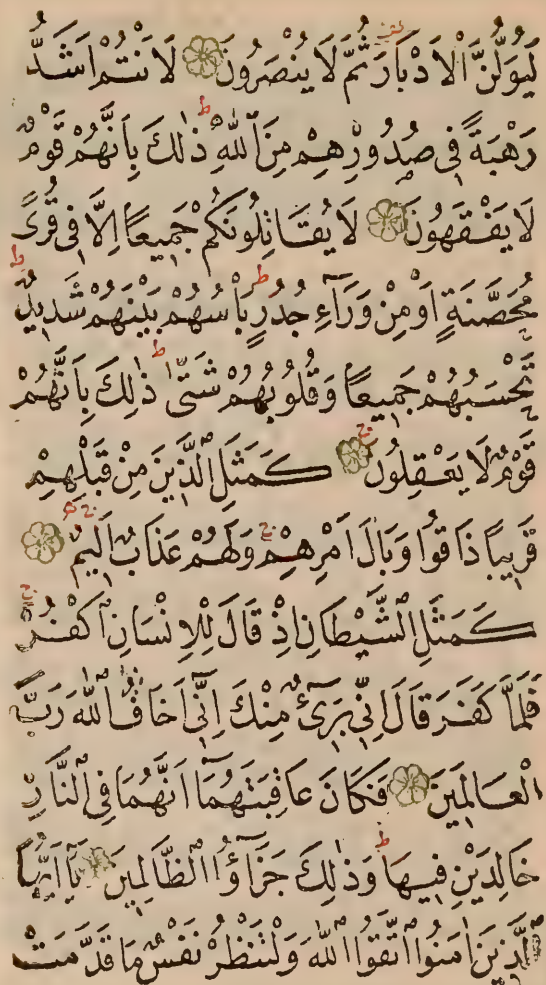 لَيُوَلُّنَّ الْاَدْبَارَ ثُمَّ لَا يُنْصَرُونَ لَا۬نْتُمْ اَشَدُّ
رَهْبَةً فِى صُدُورِهِمْ مِنَ اللّٰهِ ذٰلِكَ بِاَنَّهُمْ قَوْمٌ
لَا يَفْقَهُونَ لَا يُقَاتِلُونَكُمْ جَمِيعًا اِلَّا فِى قُرًى
مُحَصَّنَةٍ اَوْ مِنْ وَرَآءِ جُدُرٍ بَاْسُهُمْ بَيْنَهُمْ شَدِيدٌ
تَحْسَبُهُمْ جَمِيعًا وَقُلُوبُهُمْ شَتّٰى ذٰلِكَ بِاَنَّهُمْ
قَوْمٌ لَا يَعْقِلُونَ كَمَثَلِ الَّذِينَ مِنْ قَبْلِهِمْ
قَرِيبًا ذَاقُوا وَبَالَ اَمْرِهِمْ وَلَهُمْ عَذَابٌ اَلِيمٌ
كَمَثَلِ الشَّيْطَانِ اِذْ قَالَ لِلْاِنْسَانِ اكْفُرْ
فَلَمَّا كَفَرَ قَالَ اِنِّى بَرِىٓءٌ مِنْكَ اِنِّٓى اَخَافُ اللّٰهَ رَبَّ
الْعَالَمِينَ فَكَانَ عَاقِبَتَهُمَآ اَنَّهُمَا فِى النَّارِ
خَالِدَيْنِ فِيهَا وَذٰلِكَ جَزَٓاؤُا الظَّالِمِينَ يَٓا اَيُّهَا
الَّذِينَ اٰمَنُوا اتَّقُوا اللّٰهَ وَلْتَنْظُرْ نَفْسٌ مَا قَدَّمَتْ